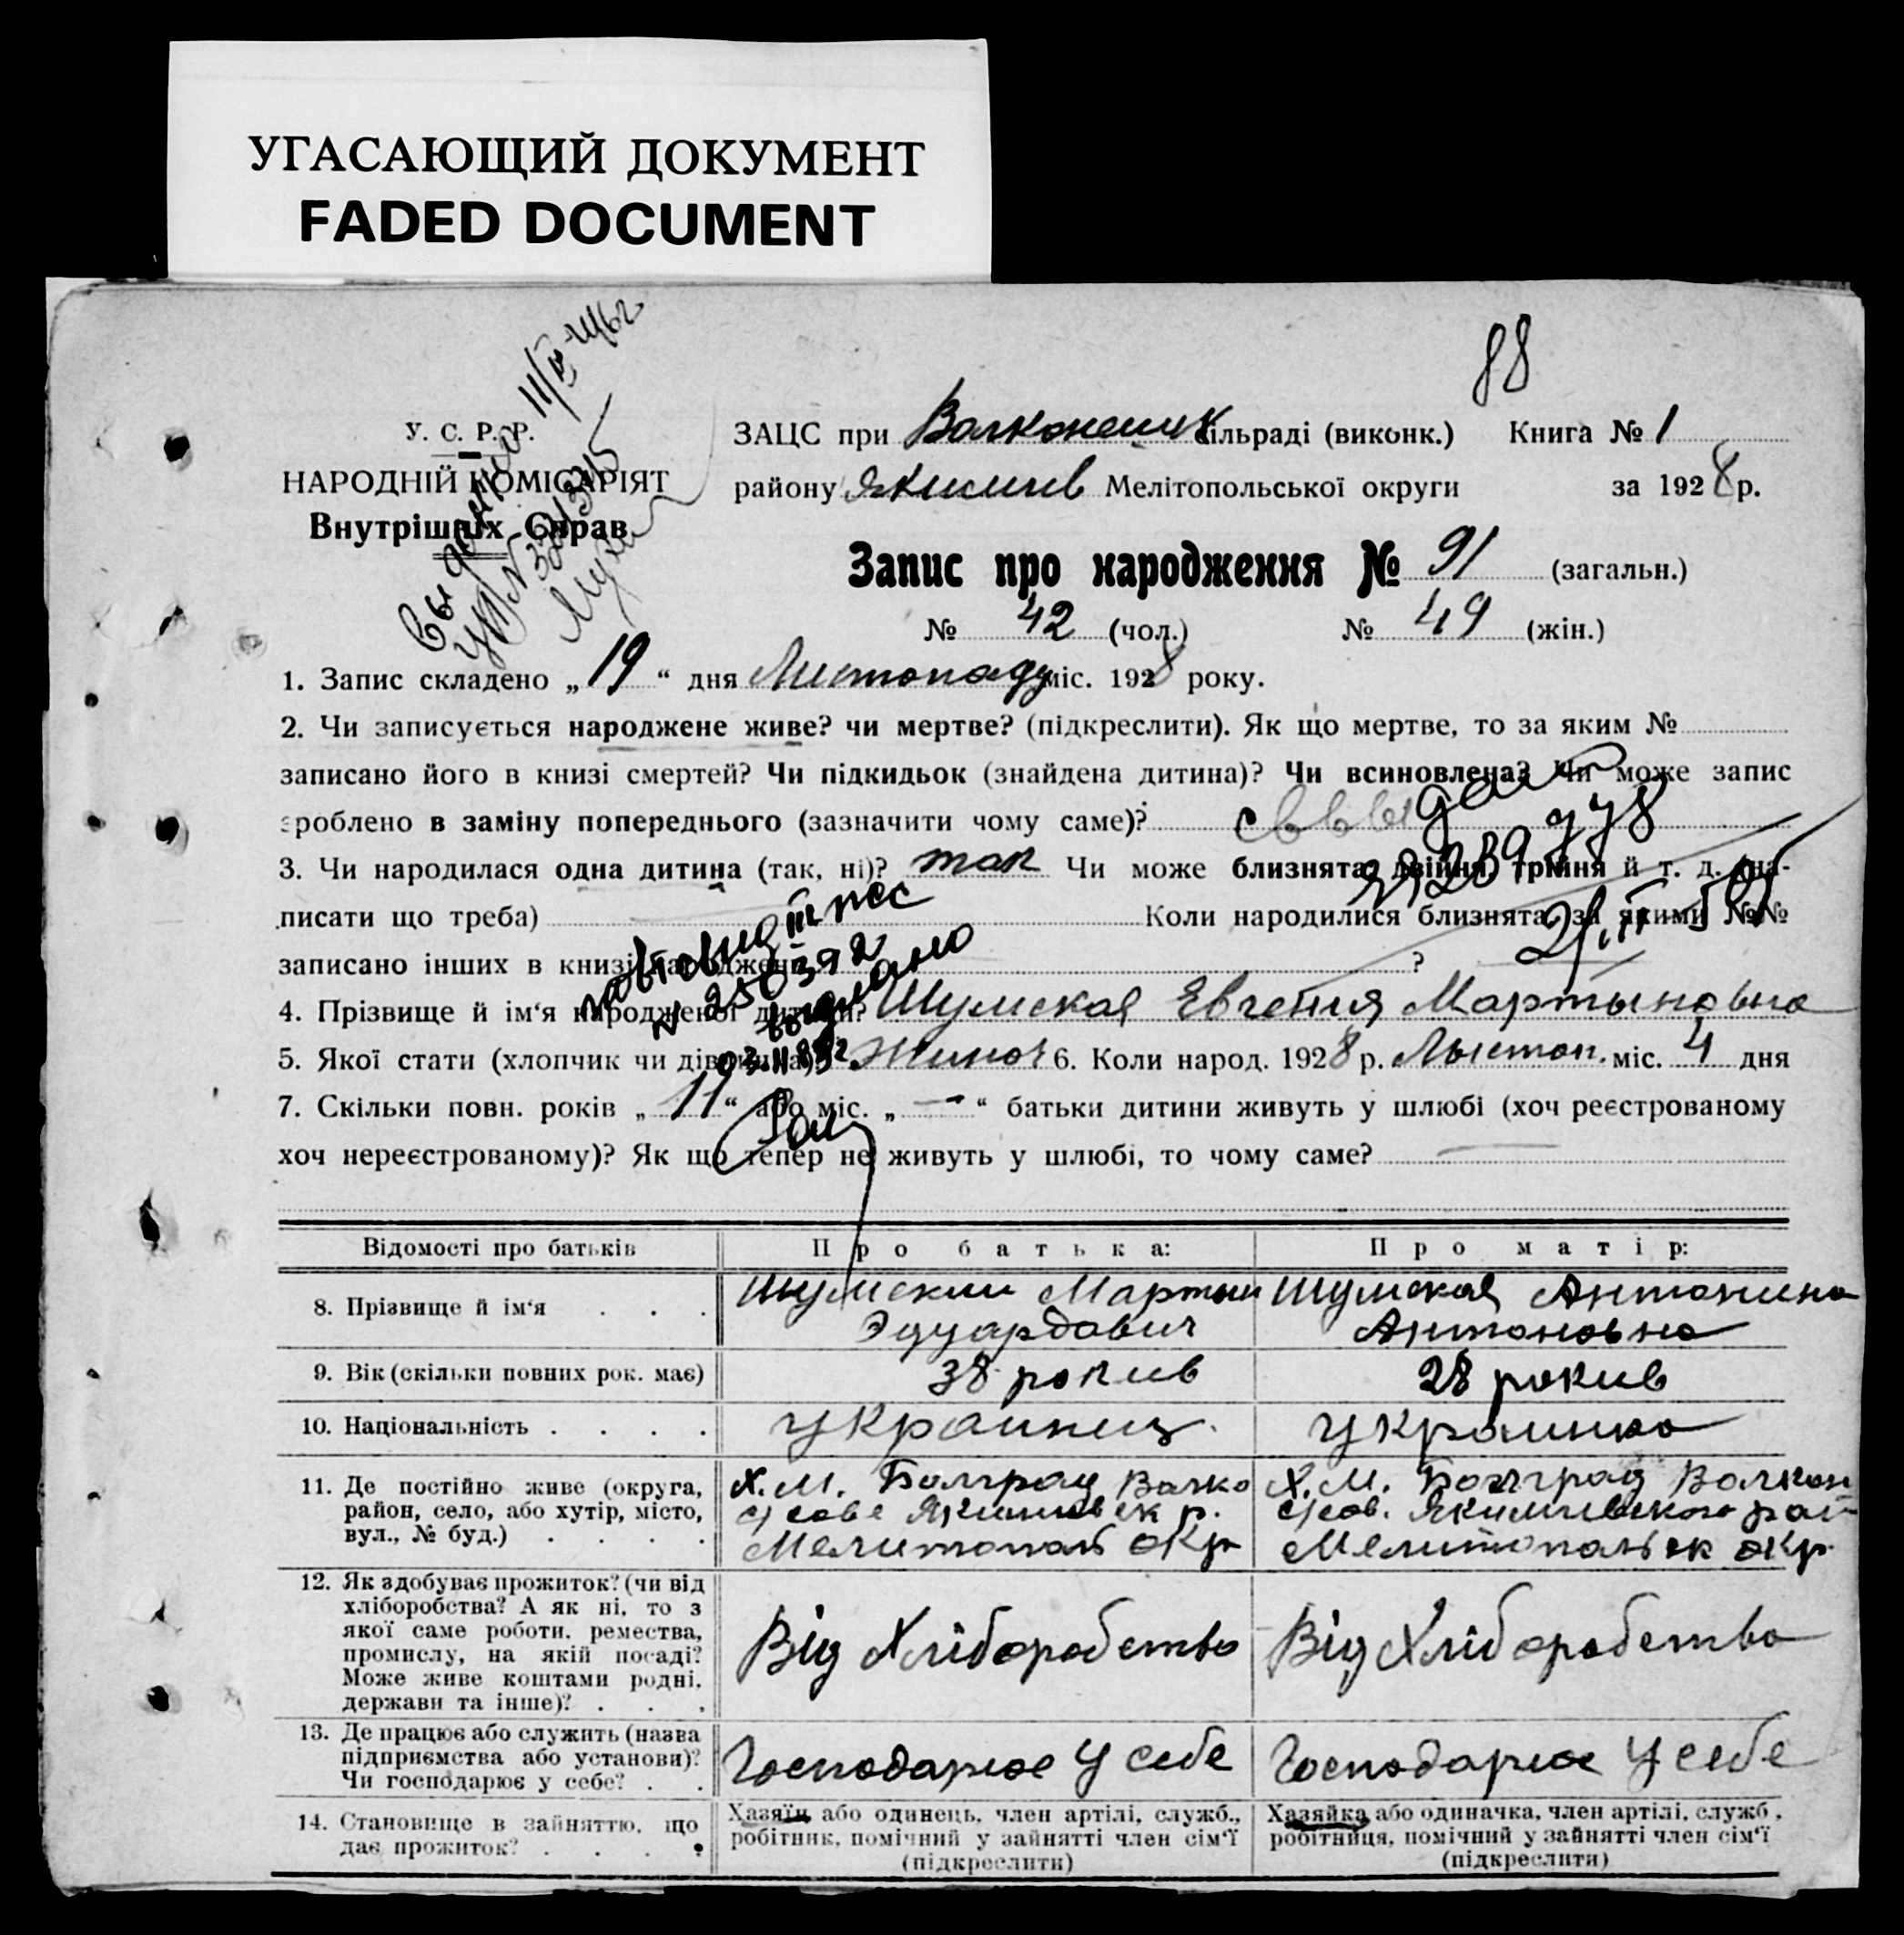 УГАСАЮЩИЙ ДОКУМЕНТ
FADED DOCUMENT
88
У. С. Р. Р.
НАРОДНІЙ КОМІСАРІЯТ
Внутрішніх Справ
ЗАЦС при Волконешик сільраді (виконк.) Книга № 1
району Якимив Мелітопольської округи за 1928 р.
Запис про народження № 91 (загальн.)
№ 42 (чол.) № 49 (жін.)
1. Запис складено „19“ дня Листопаду міс. 1928 року.
2. Чи записується народжене живе? чи мертве? (підкреслити). Як що мертве, то за яким №
записано його в книзі смертей? Чи підкидьок (знайдена дитина)? Чи всиновлена? Чи може запис
зроблено в заміну попереднього (зазначити чому саме)?
3. Чи народилася одна дитина (так, ні)? так Чи може близнята, двійня, трійня й т. д. (на-
писати що треба) Коли народилися близнята, за якими №№
записано інших в книзі народжень ?
4. Прізвище й ім‘я народженої дитини? Шумская Евгения Мартыновна
5. Якої стати (хлопчик чи дівчинка)? Жиноч 6. Коли народ. 1928 р. Лыстоп. міс. 4 дня
7. Скільки повн. років „11“ або міс. „—“ батьки дитини живуть у шлюбі (хоч реєстрованому
хоч нереєстрованому)? Як що тепер не живуть у шлюбі, то чому саме?
повторно
№ 250392
выдано
Відомості про батьків
Про батька:
Про матір:
8. Прізвище й ім‘я
Шумский Мартын
Эдуардович
Шумская Антонина
Антоновна
9. Вік (скільки повних рок. має)
38 рокив
28 рокив
10. Національність
Украинец
Украинка
11. Де постійно живе (округа,
район, село, або хутір, місто,
вул., № буд.)
Х.М. Болград Волко
с/сове Якимивск р.
Мелитополь окр
Х.М. Болград Волкон
с/сов. Якимивского рай
Мелитопольск окр.
12. Як здобуває прожиток? (чи від
хліборобства? А як ні, то з
якої саме роботи, ремества,
промислу, на якій посаді?
Може живе коштами родні,
держави та інше)?
Від Хліборобство
Від Хліборобство
13. Де працює або служить (назва
підприємства або установи)?
Чи господарює у себе?
Господарює У себе
Господарює У себе
14. Становище в зайняттю, що
дає прожиток?
Хазяїн або одинець, член артілі, служб.,
робітник, помічний у зайнятті член сім‘ї
(підкреслити)
Хазяйка або одиначка, член артілі, служб.,
робітниця, помічний у зайнятті член сім‘ї
(підкреслити)